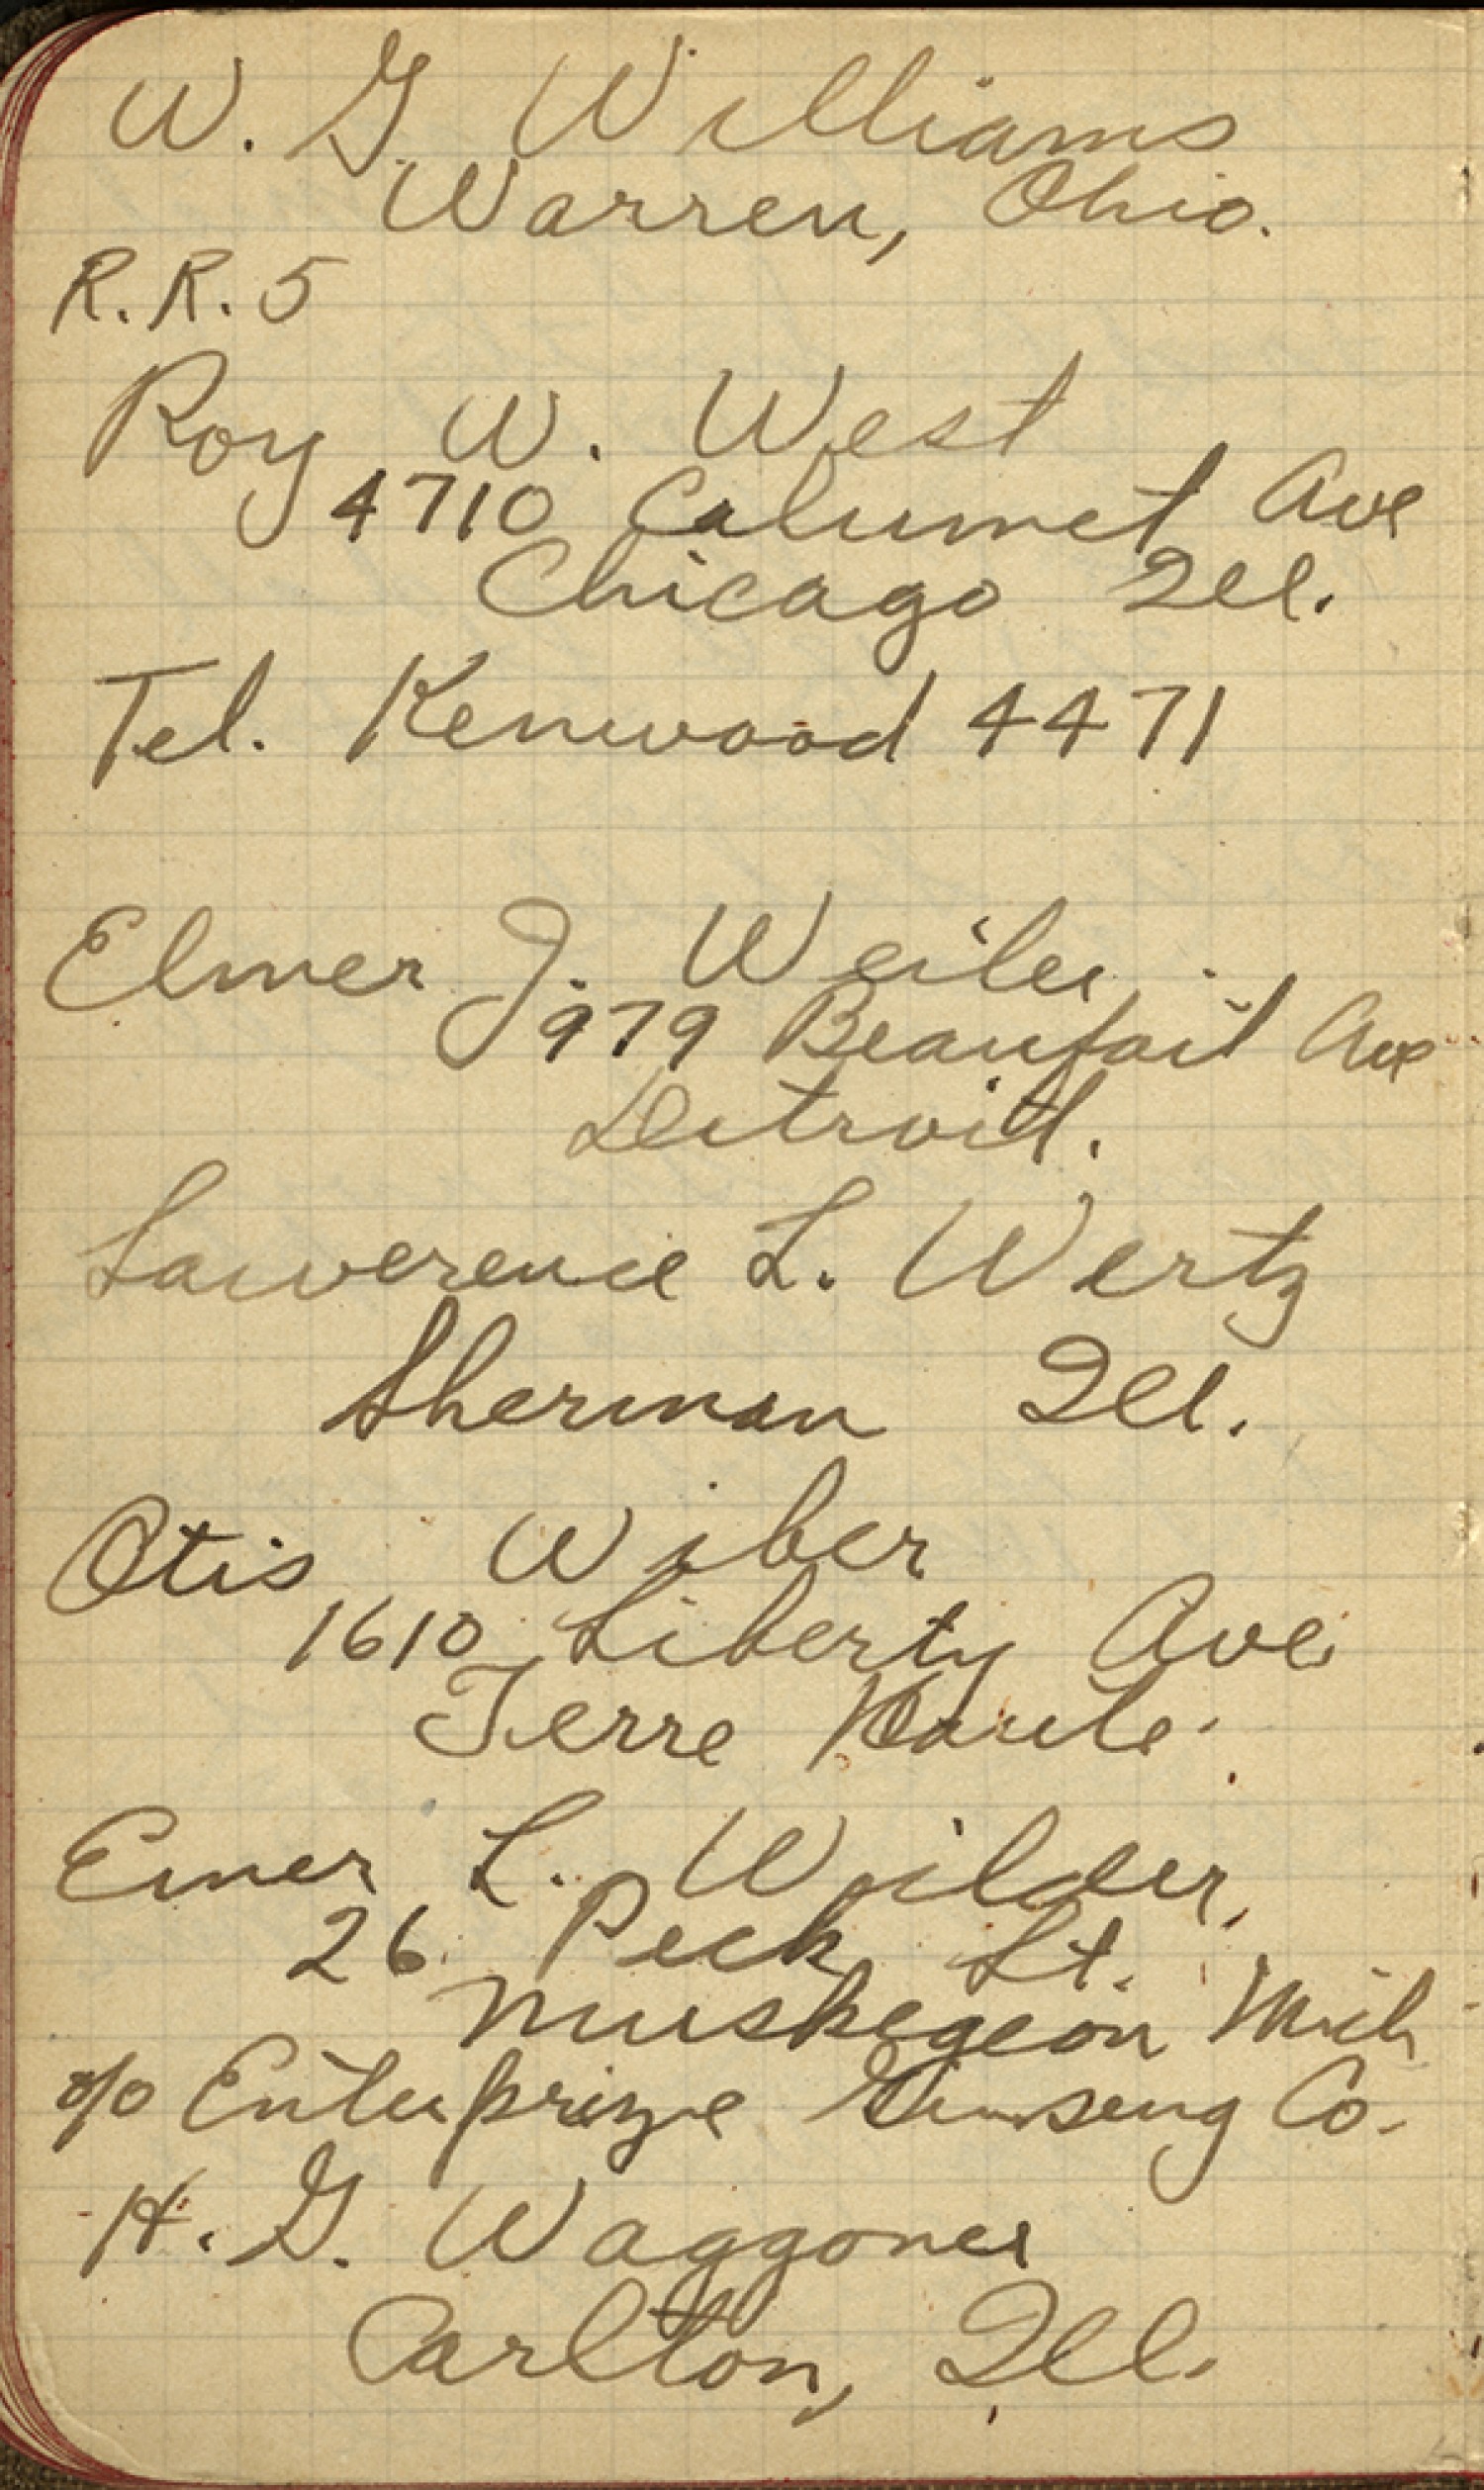 W. G. Williams
Warren, Ohio.
R. R. 5
Roy W. West
4710 Calumet Ave
Chicago Ill.
Tel. Kenwood 4471
Elmer J. Weiler
979 Beaufait Ave
Detroit.
Lawerence L. Wertz
Sherman Ill.
Otis Wiber
1610 Liberty Ave
Terre Haute.
Emer L. Wilder,
26 Peck St.
Muskegeon Mich
c/o Enterprize Ginseng Co.
H. G. Waggoner
Carlton, Ill.